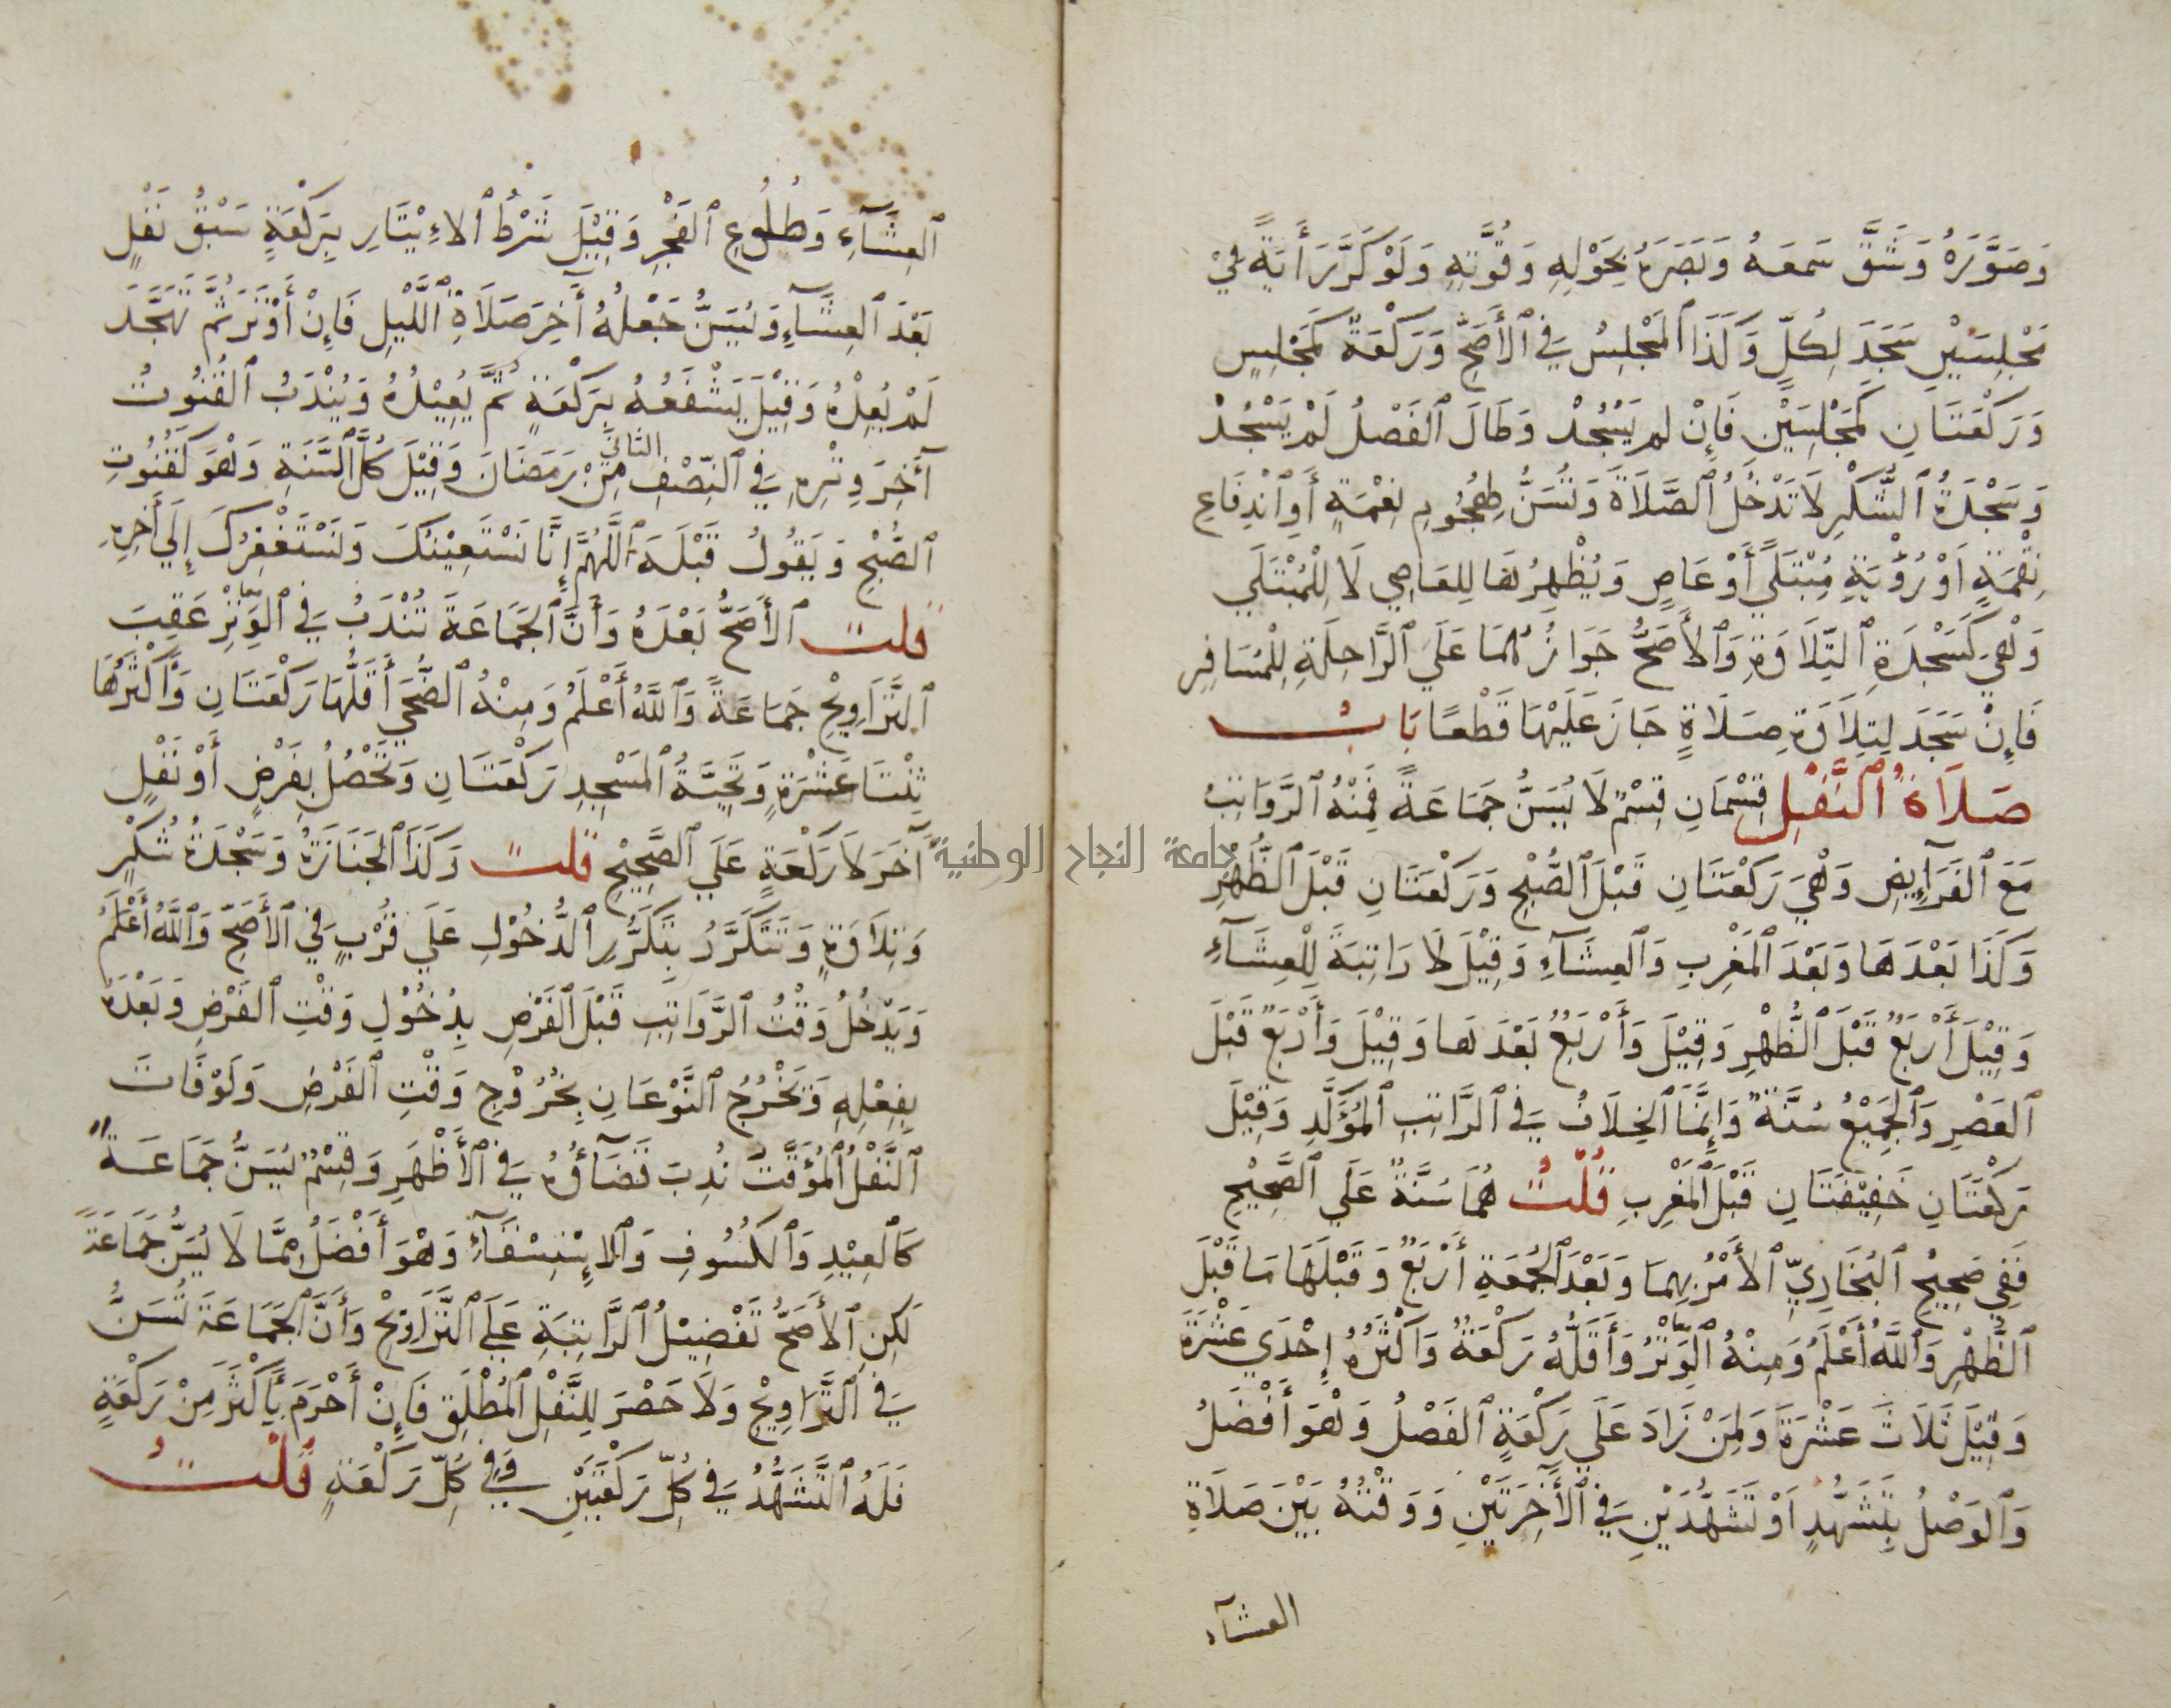 وَصَوَّرَهُ وَشَقَّ سَمعَهُ وَبَصَرَهُ بِحَوْلِهِ وَقُوَّتِهِ وَلَوْ كَرَّرَ أَيَةً فِيْ
مَجْلِسَيْنِ سَجَدَ لِكُلٍّ وَكَذَا ٱلمَجْلِسُ فِي ٱلأَصَحِّ وَرَكْعَةٌ كَمَجْلِسٍ
وَرَكْعَتَانِ كَمَجْلِسَيْنِ فَإِنْ لم يَسْجُدْ وَطَالَ ٱلفَصْلُ لَمْ يَسْجُدْ
وَسَجْدَةُ ٱلشُّكْرِ لَا تَدْخُلُ ٱلصَّلَاةَ وَتُسَنُّ لِهُجُومِ نِعْمَةٍ أَوِ ٱنْدِفَاعِ
نِقْمَةٍ اَوْ رُؤْيَةِ مُبْتَلًي أَوْ عَاصٍ وَيُظْهِرُهَا لِلعَاصِي لَا لِلْمُبْتَلَي
وَهْيَ كَسَجْدَةِ ٱلتِّلَاوَةِ وَٱلأَصَحُّ جَوَازُهُمَا عَلَي ٱلرَّاحِلَةِ لِلْمُسَافِرِ
فَإِنْ سَجَدَ لِتِلَاوَةِ صَلَاةٍ جَازَ عَلَيْهَا قَطْعًا بَابُ
صَلَاةُ ٱلنَّفْلِ قِسْمَانِ قِسْمٌ لَا يُسَنُّ جَمَاعَةً فَمِنْهُ ٱلرَّوَاتِبُ
مَعَ ٱلفَرَآئِضِ وَهْيَ رَكْعَتَانِ قَبْلَ ٱلصُّبْحِ وَرَكْعَتَانِ قَبْلَ ٱلظُّهْرِ
وَكَذَا بَعْدَهَا وَبَعْدَ ٱلمَغْرِبِ وَٱلعِشَآءِ وَقِيْلَ لَا رَاتِبَةَ لِلْعِشَآءِ
وَقِيْلَ أَرْبَعٌ قَبْلَ ٱلظُّهْرِ وَقِيْلَ وَأَرْبَعٌ بَعْدَهَا وَقِيْلَ وَأَرْبَعٌ قَبْلَ
ٱلعَصْرِ وَٱلجَمِيْعُ سُنَّةٌ وَإِنَّمَا ٱلخِلَافُ فِي ٱلرَّاتِبِ ٱلمُؤَكَّدِ وَقِيْلَ
رَكْعَتَانِ خَفِيْفَتَانِ قَبْلَ ٱلمَغْرِبِ قُلْتُ هُمَا سُنَّةٌ عَلَي ٱلصَّحِيْحِ
فَفِي صَحِيْحِ ٱلبُخَارِيِّ ٱلأَمْرُ بِهِمَا وَبَعْدَ ٱلجُمُعَةِ أَرْبَعٌ وَقَبْلَهَا مَا قَبْلَ
ٱلظُّهْرِ وَٱللَّهُ أَعْلَمُ وَمِنْهُ ٱلوَِتْرُ وَأَقَلُّهُ رَكْعَةٌ وَاَكْثَرُهُ إِحْدَي عَشْرَةَ
وَقِيْلَ ثَلَاثَ عَشْرَةَ وَلِمَنْ زَادَ عَلَي رَكْعَةٍ ٱلفَصْلُ وَهْوَ أَفْضَلُ
وَٱلوَصْلُ بِتَشَهُّدٍ اَوْ تَشَهُّدَيْنِ فِي ٱلأَخِرَتَيْنِ وَوَقْتُهُ بَيْنَ صَلَاةِ
العشآء
ٱلعِشَآءِ وَطُلُوعِ ٱلفَجْرِ وَقِيْلَ شَرْطُ ٱلاءِيْتَارِ بِرَكْعَةٍ سَبْقُ نَفْلٍ
بَعْدَ ٱلعِشَآءِ وَيُسَنُّ جَعْلُهُ أَخِرَ صَلَاةِ ٱللَّيْلِ فَإِنْ أَوْتَرَ ثُمَّ تَهَجَّدَ
لَمْ يُعِدْهُ وَقِيْلَ يَشْفَعُهُ بِرَكْعَةٍ ثُمَّ يُعِيْدُهُ وَيُنْدَبُ ٱلقُنُوتُ
آخِرَ وِتْرِهِ فِي ٱلنِّصْفِ الثاني مِنْ رَمَضَانَ وَقِيْلَ كُلَّ ٱلسَّنَةِ وَهْوَ كَقُنُوتِ
ٱلصُّبْحِ وَيَقُولُ قَبْلَهُ ٱللَّهُمَّ إِنَّا نَسْتَعِيْنُكَ وَنَسْتَغْفِرُكَ إِلَي أَخِرِهِ
قلت ٱلأَصَحُّ بَعْدَهُ وَأَنَّ ٱلجَمَاعَةَ تُنْدَبُ فِي ٱلوَِتْرِ عَقِبَ
ٱلتَّرَاوِيْحِ جَمَاعَةً وَٱللَّهُ أَعْلَمُ وَمِنْهُ ٱلضُّحَي أَقَلُّهَا رَكْعَتَانِ وَأَكْثَرُهَا
ثِنْتَا عَشْرَةَ وَتَحِيَّةُ ٱلمَسْجِدِ رَكْعَتَانِ وَتَحْصُلُ بِفَرْضٍ أَوْ نَفْلٍ
آخَرَ لَا رَكْعَةٍ عَلَي ٱلصَّحِيْحِ قلت وَكَذَا ٱلجَنَازَةُ وَسَجْدَةُ شُكْرٍ
وَتِلَاوَةٍ وَتَتَكَرَّرُ بِتَكَرُّرِ ٱلدُّخُوْلِ عَلَي قُرْبٍ فِي ٱلأَصَحِّ وَٱللَّهُ أَعْلَمُ
وَيَدْخُلُ وَقْتُ ٱلرَّوَاتِبِ قَبْلَ ٱلفَرْضِ بِدُخُوْلِ وَقْتِ ٱلفَرْضِ وَبَعْدَهُ
بِفِعْلِهِ وَيَخْرُجُ ٱلنَّوْعَانِ بِخُرُوْجِ وَقْتِ ٱلفَرْضِ وَلَوْ فَاتَ
ٱلنَّفْلُ ٱلمُؤَقَّتُ نُدِبَ قَضَآؤُهُ فِي ٱلأَظْهَرِ وَقِسْمٌ يُسَنُّ جَمَاعَةً
كَٱلعِيْدِ وَٱلكُسُوفِ وَٱلاِسْتِسْقَآءِ وَهْوَ أَفْضَلُ مِمَّا لَا يُسَنُّ جَمَاعَةً
لَكِنِ ٱلأَصَحُّ تَفْضِيْلُ ٱلرَّاتِبَةِ عَلَي ٱلتَّرَاوِيْحِ وَأَنَّ ٱلجَمَاعَةَ تُسَنُّ
فِي ٱلتَّرَاوِيْحِ وَلَا حَصْرَ لِلنَّفْلِ ٱلمُطْلَقِ فَإِنْ أَحْرَمَ بِأَكْثَرَ مِنْ رَكْعَةٍ
فَلَهُ ٱلتَّشَهُّدُ فِي كُلِّ رَكْعَتَيْنِ وَفِي كُلِّ رَكْعَةٍ قُلْتُ
جامعة النجاح الوطنية